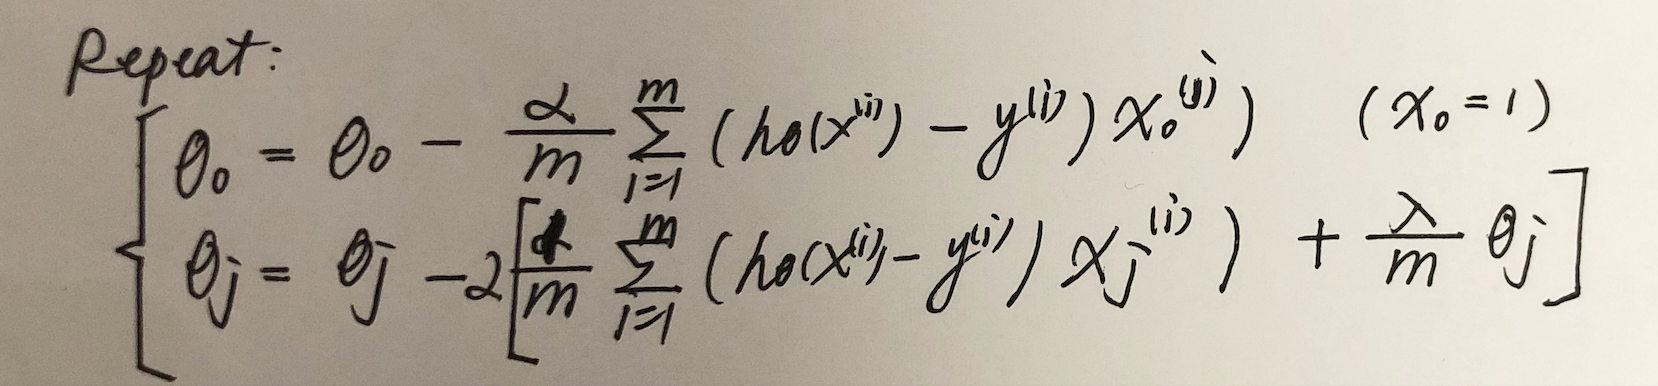 Repeat:
θ₀ = θ₀ − α/m ∑ᵢ₌₁ᵐ (hθ(x⁽ⁱ⁾) − y⁽ⁱ⁾) x₀⁽ⁱ⁾) (x₀ = 1)
θⱼ = θⱼ − 2[1/m ∑ᵢ₌₁ᵐ (hθ(x⁽ⁱ⁾) − y⁽ⁱ⁾) xⱼ⁽ⁱ⁾) + λ/m θⱼ]